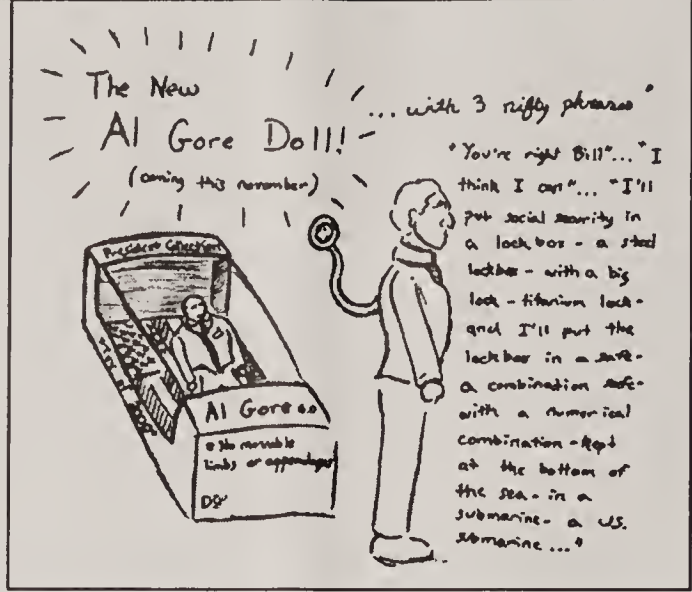 The New
Al Gore Doll!
(coming this november)
... with 3 nifty phrases"
"You're right Bill"... "I
think I can"... "I'll
put social security in
a lock box - a steel
lockbox - with a big
lock - titanium lock -
and I'll put the
lockbox in a safe -
a combination safe -
with a numerical
combination - kept
at the bottom of
the sea - in a
submarine - a U.S.
submarine ..."
President Collection
Al Gore
movable
limbs or appendages